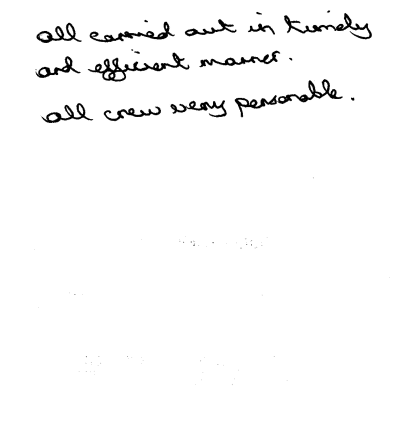 all carried out in timely
and efficient manner.
all crew very personable.